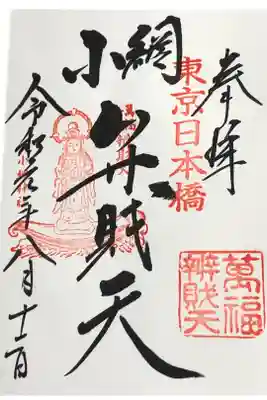 奉拝
東京日本橋
萬福
辨財天
小網
弁財天
令和元年八月十一日